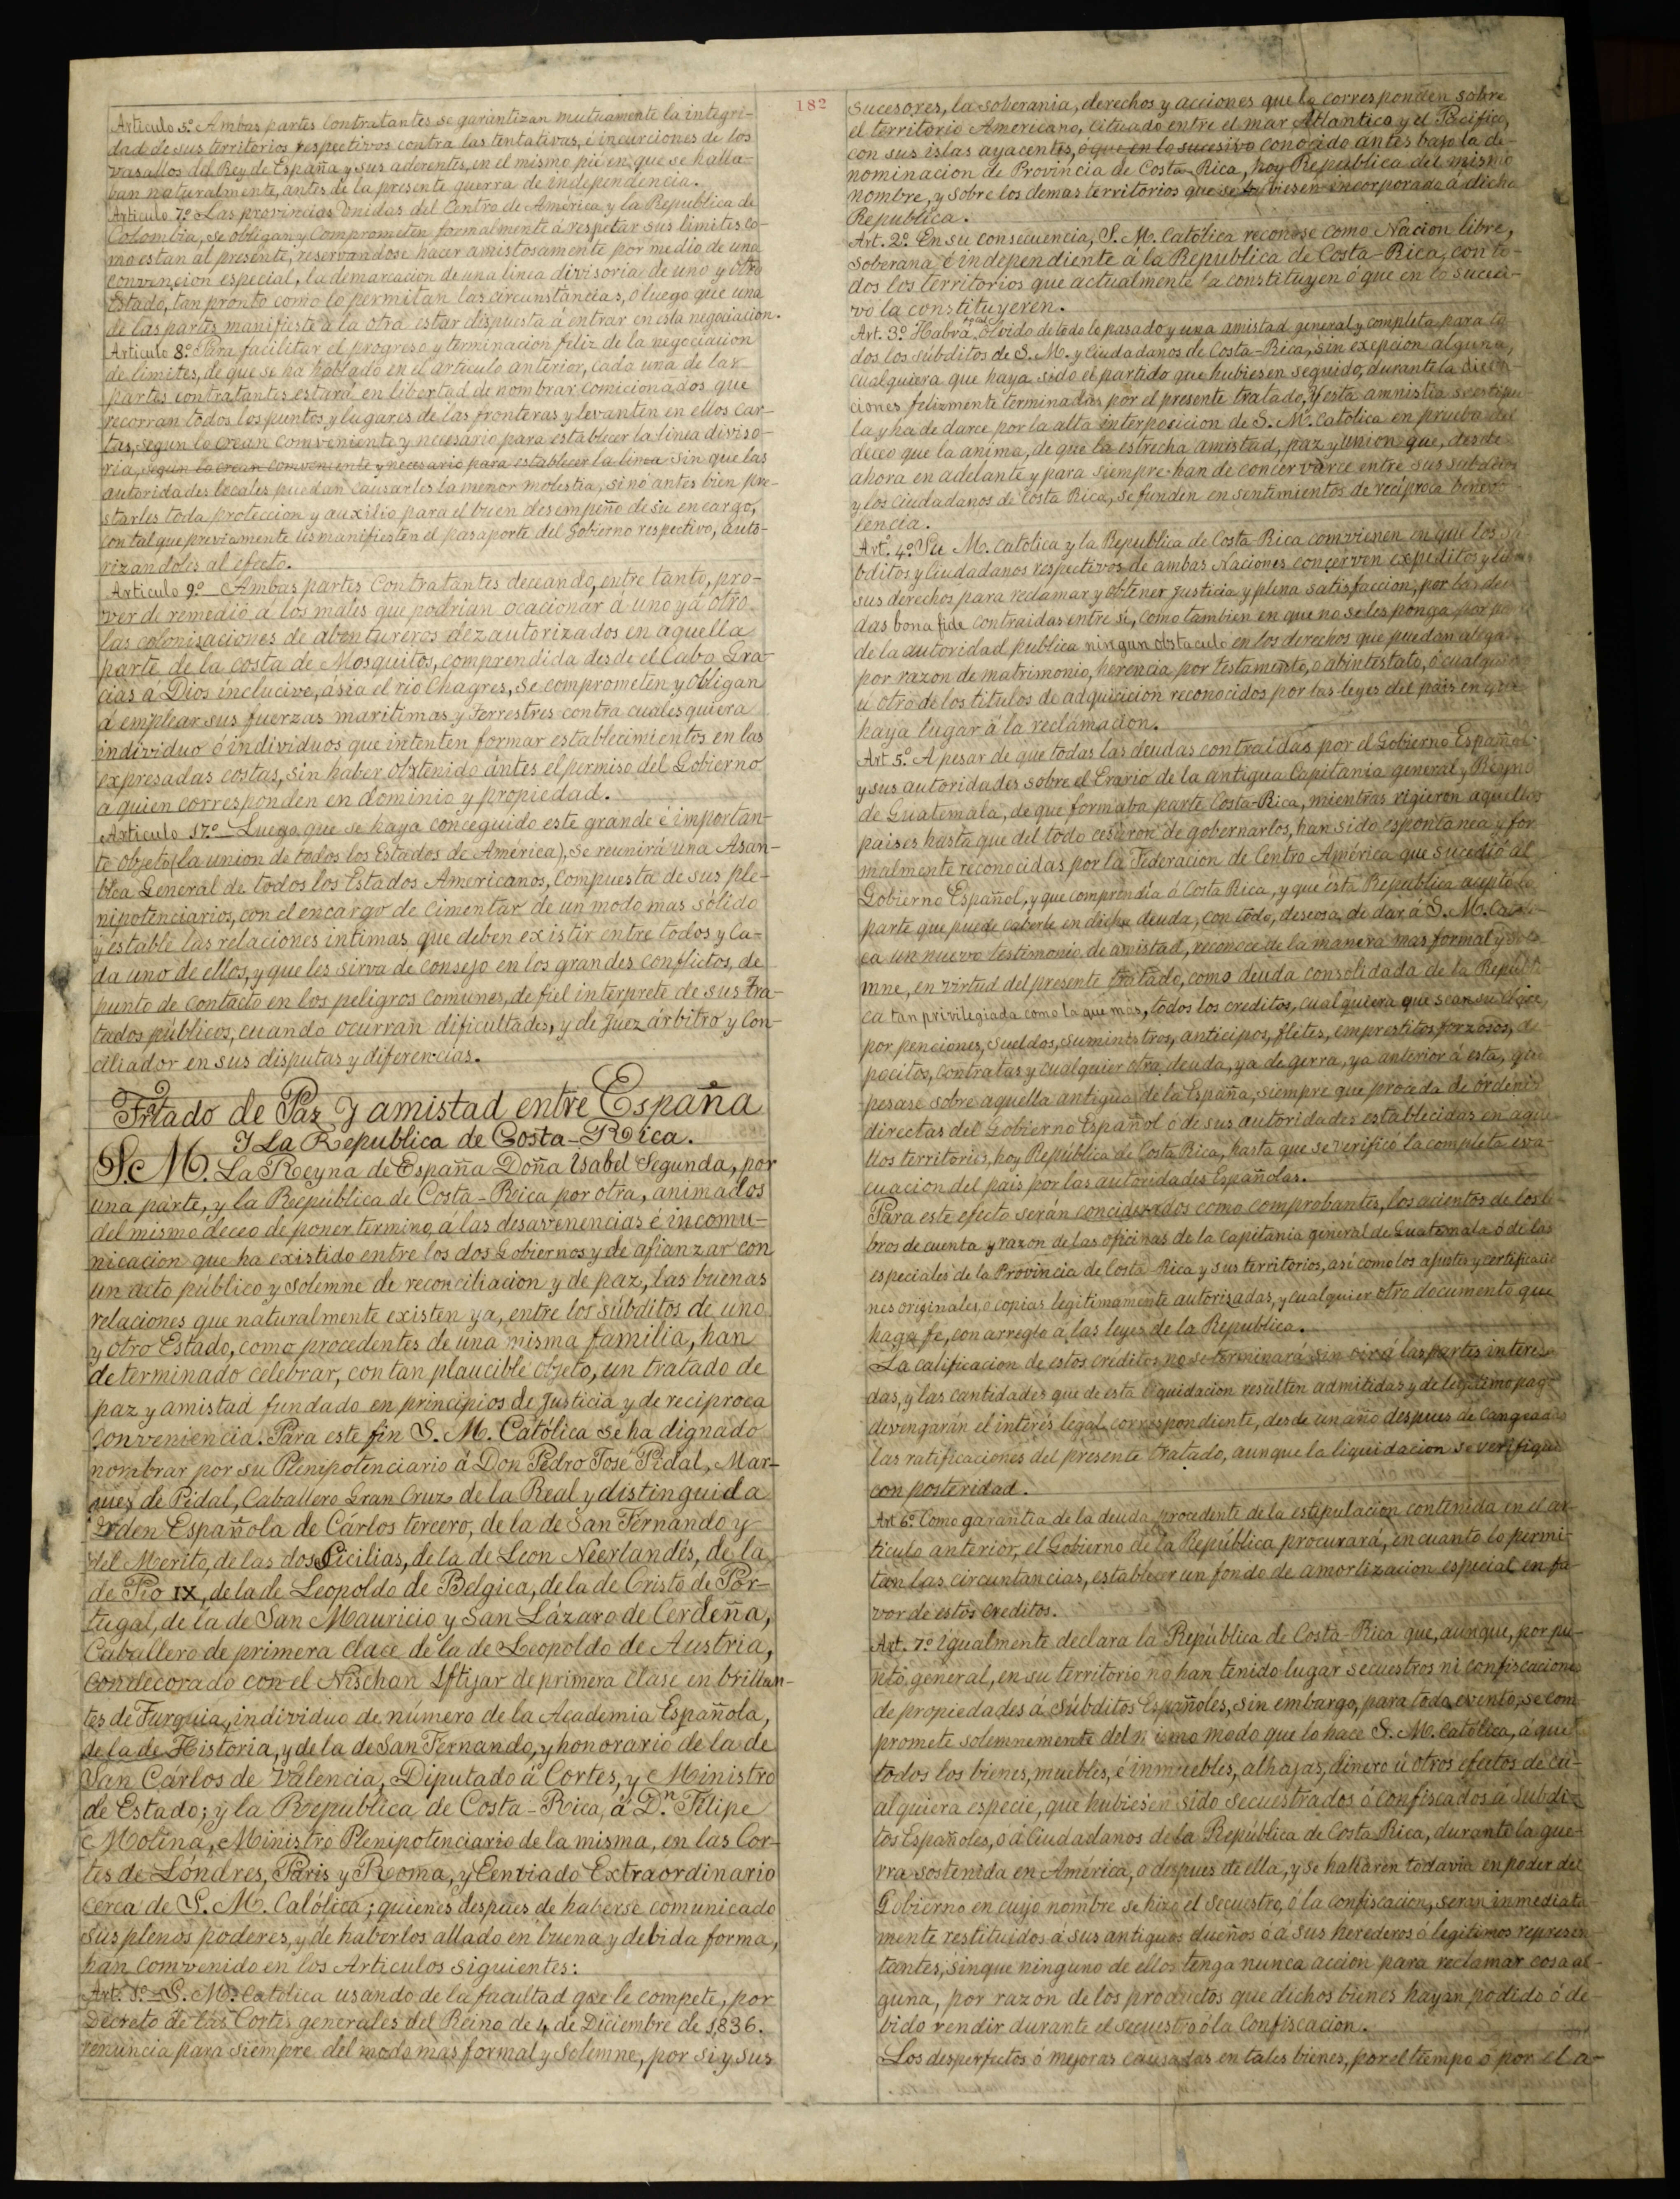 182
Articulo 5º Ambas partes Contratantes se garantizan mutuamente la integri-
dad de sus territorios respectivos contra las tentativas, é incurciones de los
vasallos del Rey de España y sus aderentes, en el mismo pié en que se halla-
ban naturalmente, antes de la presente guerra de independencia.
Articulo 7º Las provincias Unidas del Centro de América y la Republica de
Colombia, se obligan y Comprometen formalmente á respetar sus limites co-
mo estan al presente, reservandose hacer amistosamente por medio de una
convencion especial, la demarcacion de una linea divisoria de uno y otro
Estado, tan pronto como lo permitan las circunstancias, ó luego que una
de las partes manifieste á la otra estar dispuesta á entrar en esta negociacion.
Articulo 8º Para facilitar el progreso y terminacion feliz de la negociacion
de limites, de que se ha hablado en el articulo anterior, cada una de las
partes contratantes estará en libertad de nombrar comicionados que
recorran todos los puntos y lugares de las fronteras y levanten en ellos car-
tas, segun lo crean conveniente y necesario para establecer la linea diviso-
ria, segun lo crean conveniente y necesario para establecer la linea sin que las
autoridades locales puedan causarles la menor molestia, sinó antes bien pre-
starles toda proteccion y auxilio para el buen desempeño de su encargo,
con tal que previamente les manifiesten el pasaporte del Gobierno respectivo, auto-
rizandoles al efecto.
Articulo 9º Ambas partes Contratantes deceando, entre tanto, pro-
ver de remedio á los males que podrian ocacionar á uno y á otro
las colonizaciones de abentureros dezautorizados en aquella
parte de la costa de Mosquitos, comprendida desde el Cabo Gra-
cias a Dios inclucive, ásia el rio Chagres, se comprometen y obligan
á emplear sus fuerzas maritimas y terrestres contra cualesquiera
individuo ó individuos que intenten formar establecimientos en las
expresadas costas, sin haber obtenido ántes el permiso del Gobierno
a quien corresponden en dominio y propiedad.
Articulo 17º Luego que se haya conceguido este grande é importan-
te objeto (la union de todos los Estados de América), se reunirá una Asan-
blea General de todos los Estados Americanos, Compuesta de sus ple-
nipotenciarios, con el encargo de cimentar de un modo mas sólido
y estable las relaciones intimas que deben existir entre todos y Ca-
da uno de ellos, y que les sirva de Consejo en los grandes conflictos, de
punto de contacto en los peligros comunes, de fiel interprete de sus tra-
tados publicos, cuando ocurran dificultades, y de Juez árbitro y con-
ciliador en sus disputas y diferencias.
Tratado de Paz y amistad entre España
Y La Republica de Costa-Rica.
S. M. La Reyna de España Doña Isabel Segunda, por
una parte, y la República de Costa-Rica por otra, animados
del mismo deceo de poner termino á las desavenencias é incomu-
nicacion que ha existido entre los dos Gobiernos y de afianzar con
un acto público y solemne de reconciliacion y de paz, las buenas
relaciones que naturalmente existen ya, entre los súbditos de uno
y otro Estado, como procedentes de una misma familia, han
determinado celebrar, con tan plaucible objeto, un tratado de
paz y amistad fundado en principios de justicia y de reciproca
conveniencia. Para este fin S. M. Católica se ha dignado
nombrar por su Plenipotenciario á Don Pedro José Pidal, Mar-
ques de Pidal, Caballero Gran Cruz de la Real y distinguida
Orden Española de Cárlos tercero, de la de San Fernando y
del Merito, de las dos Sicilias, de la de Leon Neerlandés, de la
de Pio IX, de la de Leopoldo de Belgica, de la de Cristo de Por-
tugal, de la de San Mauricio y San Lázaro de Cerdeña,
Caballero de primera clace de la de Leopoldo de Austria,
condecorado con el Nischan Iftijar de primera clase en brillan-
tes de Turquia, individuo de número de la Academia Española,
de la de Historia, y de la de San Fernando, y honorario de la de
San Cárlos de Valencia, Diputado á Cortes, y Ministro
de Estado; y la República de Costa-Rica, á Dn. Felipe
Molina, Ministro Plenipotenciario de la misma, en las Cor-
tes de Lóndres, Paris y Roma, y Eenviado Extraordinario
cerca de S. M. Calólica; quienes despues de haberse comunicado
sus plenos poderes, y de haberlos allado en buena y debida forma,
han convenido en los Articulos siguientes:
Art. 1º S. M. Catolica usando de la facultad que le compete, por
Decreto de las Cortes generales del Reino de 4 de Diciembre de 1,836.
renuncia para siempre del modo mas formal y solemne, por si y sus
sucesores, la soberania, derechos y acciones que le corresponden sobre
el territorio Americano, cituado entre el mar Atlantico y el Pacifico,
con sus islas ayacentes, ó que en lo sucesivo conocido antes bajo la de-
nominacion de Provincia de Costa-Rica, hoy República del mismo
nombre, y sobre los demas territorios que se hubiesen incorporado á dicha
Republica.
Art. 2º. En su consecuencia, S. M. Católica reconose como Nacion libre,
soberana é independiente á la Republica de Costa-Rica, con to-
dos los territorios que actualmente la constituyen ó que en lo sucesi-
vo la constituyeren.
Art. 3º. Habrá olvido de todo lo pasado y una amistad general y completa para to-
dos los súbditos de S. M. y Ciudadanos de Costa-Rica, sin exepcion alguna,
cualquiera que haya sido el partido que hubiesen seguido, durante la dicen-
ciones felizmente terminadas por el presente tratado, Y esta amnistia se estipu
la y ha de darce por la alta interposicion de S. M. Catolica en prueba del
deceo que la anima, de que la estrecha amistad, paz y union que, desde
ahora en adelante y para siempre han de concervarce entre sus subditos
y los ciudadanos de Costa Rica, se funden en sentimientos de reciproca benevo
lencia.
Artº. 4º. Su M. Catolica y la Republica de Costa-Rica convienen en que los sú
bditos y Ciudadanos respectivos de ambas Naciones concerven expeditos y
sus derechos para reclamar y obtener justicia y plena satisfaccion, por las deu-
das bona fide contraidas entre si, como tambien en que no se les ponga por parte
de la autoridad publica ningun obstaculo en los derechos que puedan alegar
por razon de matrimonio, herencia por testamento, o abintestato, ó cualquier
u otro de los titulos de adquicicion reconocidos por las leyes del pais en que
haya lugar á la reclamacion.
Art 5º. A pesar de que todas las deudas contraídas por el Gobierno Español
y sus autoridades sobre el Erario de la antigua Capitania general y Reyno
de Guatemala, de que formaba parte Costa-Rica, mientras rigieron aquellos
paises hasta que del todo cesaron de gobernarlos, han sido espontanea y for
malmente reconocidas por la Federacion de Centro América que sucedió al
Gobierno Español, y que comprendia á Costa Rica, y que ésta República aceptó la
parte que puede caberle en dicha deuda, con todo, deseosa, de dar á S. M. Católi-
ca un nuevo testimonio de amistad, reconoce de la manera mas formal y sole-
mne, en virtud del presente tratado, como deuda consolidada de la Repúbli
ca tan privilegiada como la que mas, todos los creditos, cualquiera que sean su clace,
por penciones, sueldos, suministros, anticipos, fletes, emprestitos forzosos, de
pocitos, contratas y cualquier otra deuda, ya de gerra, ya anterior á esta, que
pesase sobre aquella antigua de la España; siempre que proceda de órdenes
directas del Gobierno Español ó de sus autoridades establecidas en aque-
llos territorios, hoy República de Costa Rica, hasta que se verificó la completa eva-
cuacion del pais por las autoridades Españolas.
Para este efecto serán conciderados como comprobantes, los acientos de los li-
bros de cuenta y razon de las oficinas de la Capitania general de Guatemala ó de las
especiales de la Provincia de Costa-Rica y sus territorios, así como los ajustes y certificacio
nes originales, o copias legitimamente autorisadas, y cualquier otro documento que
haga fe, con arreglo á las leyes de la Republica.
La calificacion de estos créditos no se terminará sin oir á las partes interesa-
das, y las cantidades que de esta liquidacion resulten admitidas y de legitimo pago
devengarán el interes legal correspondiente, desde un año despues de cangeadas
las ratificaciones del presente tratado, aunque la liquidacion se verifique
con posteridad.
Art 6º Como garantia de la deuda procedente de la estipulacion contenida en el ar-
ticulo anterior, el Gobierno de la República procurará, en cuanto lo permi-
tan las circuntancias, establecer un fondo de amortizacion especial en fa-
vor de estos creditos.
Art. 7º Igualmente declara la República de Costa-Rica que, aunque, por pu-
nto general, en su territorio no han tenido lugar secuestros ni confiscaciones
de propiedades á súbditos Españoles, sin embargo, para todo evento, se com-
promete solemnemente del mismo modo que lo hace S. M. Catolica, á que
todos los bienes, muebles, é inmuebles, alhajas, dinero ú otros efectos de cu-
alquiera especie, que hubiesen sido secuestrados ó confiscados á subdi-
tos Españoles, o á Ciudadanos de la República de Costa Rica, durante la gue-
rra sostenida en América, o despues de ella, y se hallaren todavia en poder del
Gobierno en cuyo nombre se hizo el secuestro, ó la confiscacion, serán inmediata-
mente restituidos á sus antiguos dueños ó a sus herederos ó legitimos represen-
tantes, sin que ninguno de ellos tenga nunca acción para reclamar cosa al-
guna, por razon de los productos que dichos bienes hayan podido ó de-
bido rendir durante el secuestro ó la Confiscacion.
Los desperfectos ó mejoras causadas en tales bienes, por el tiempo ó por el a-